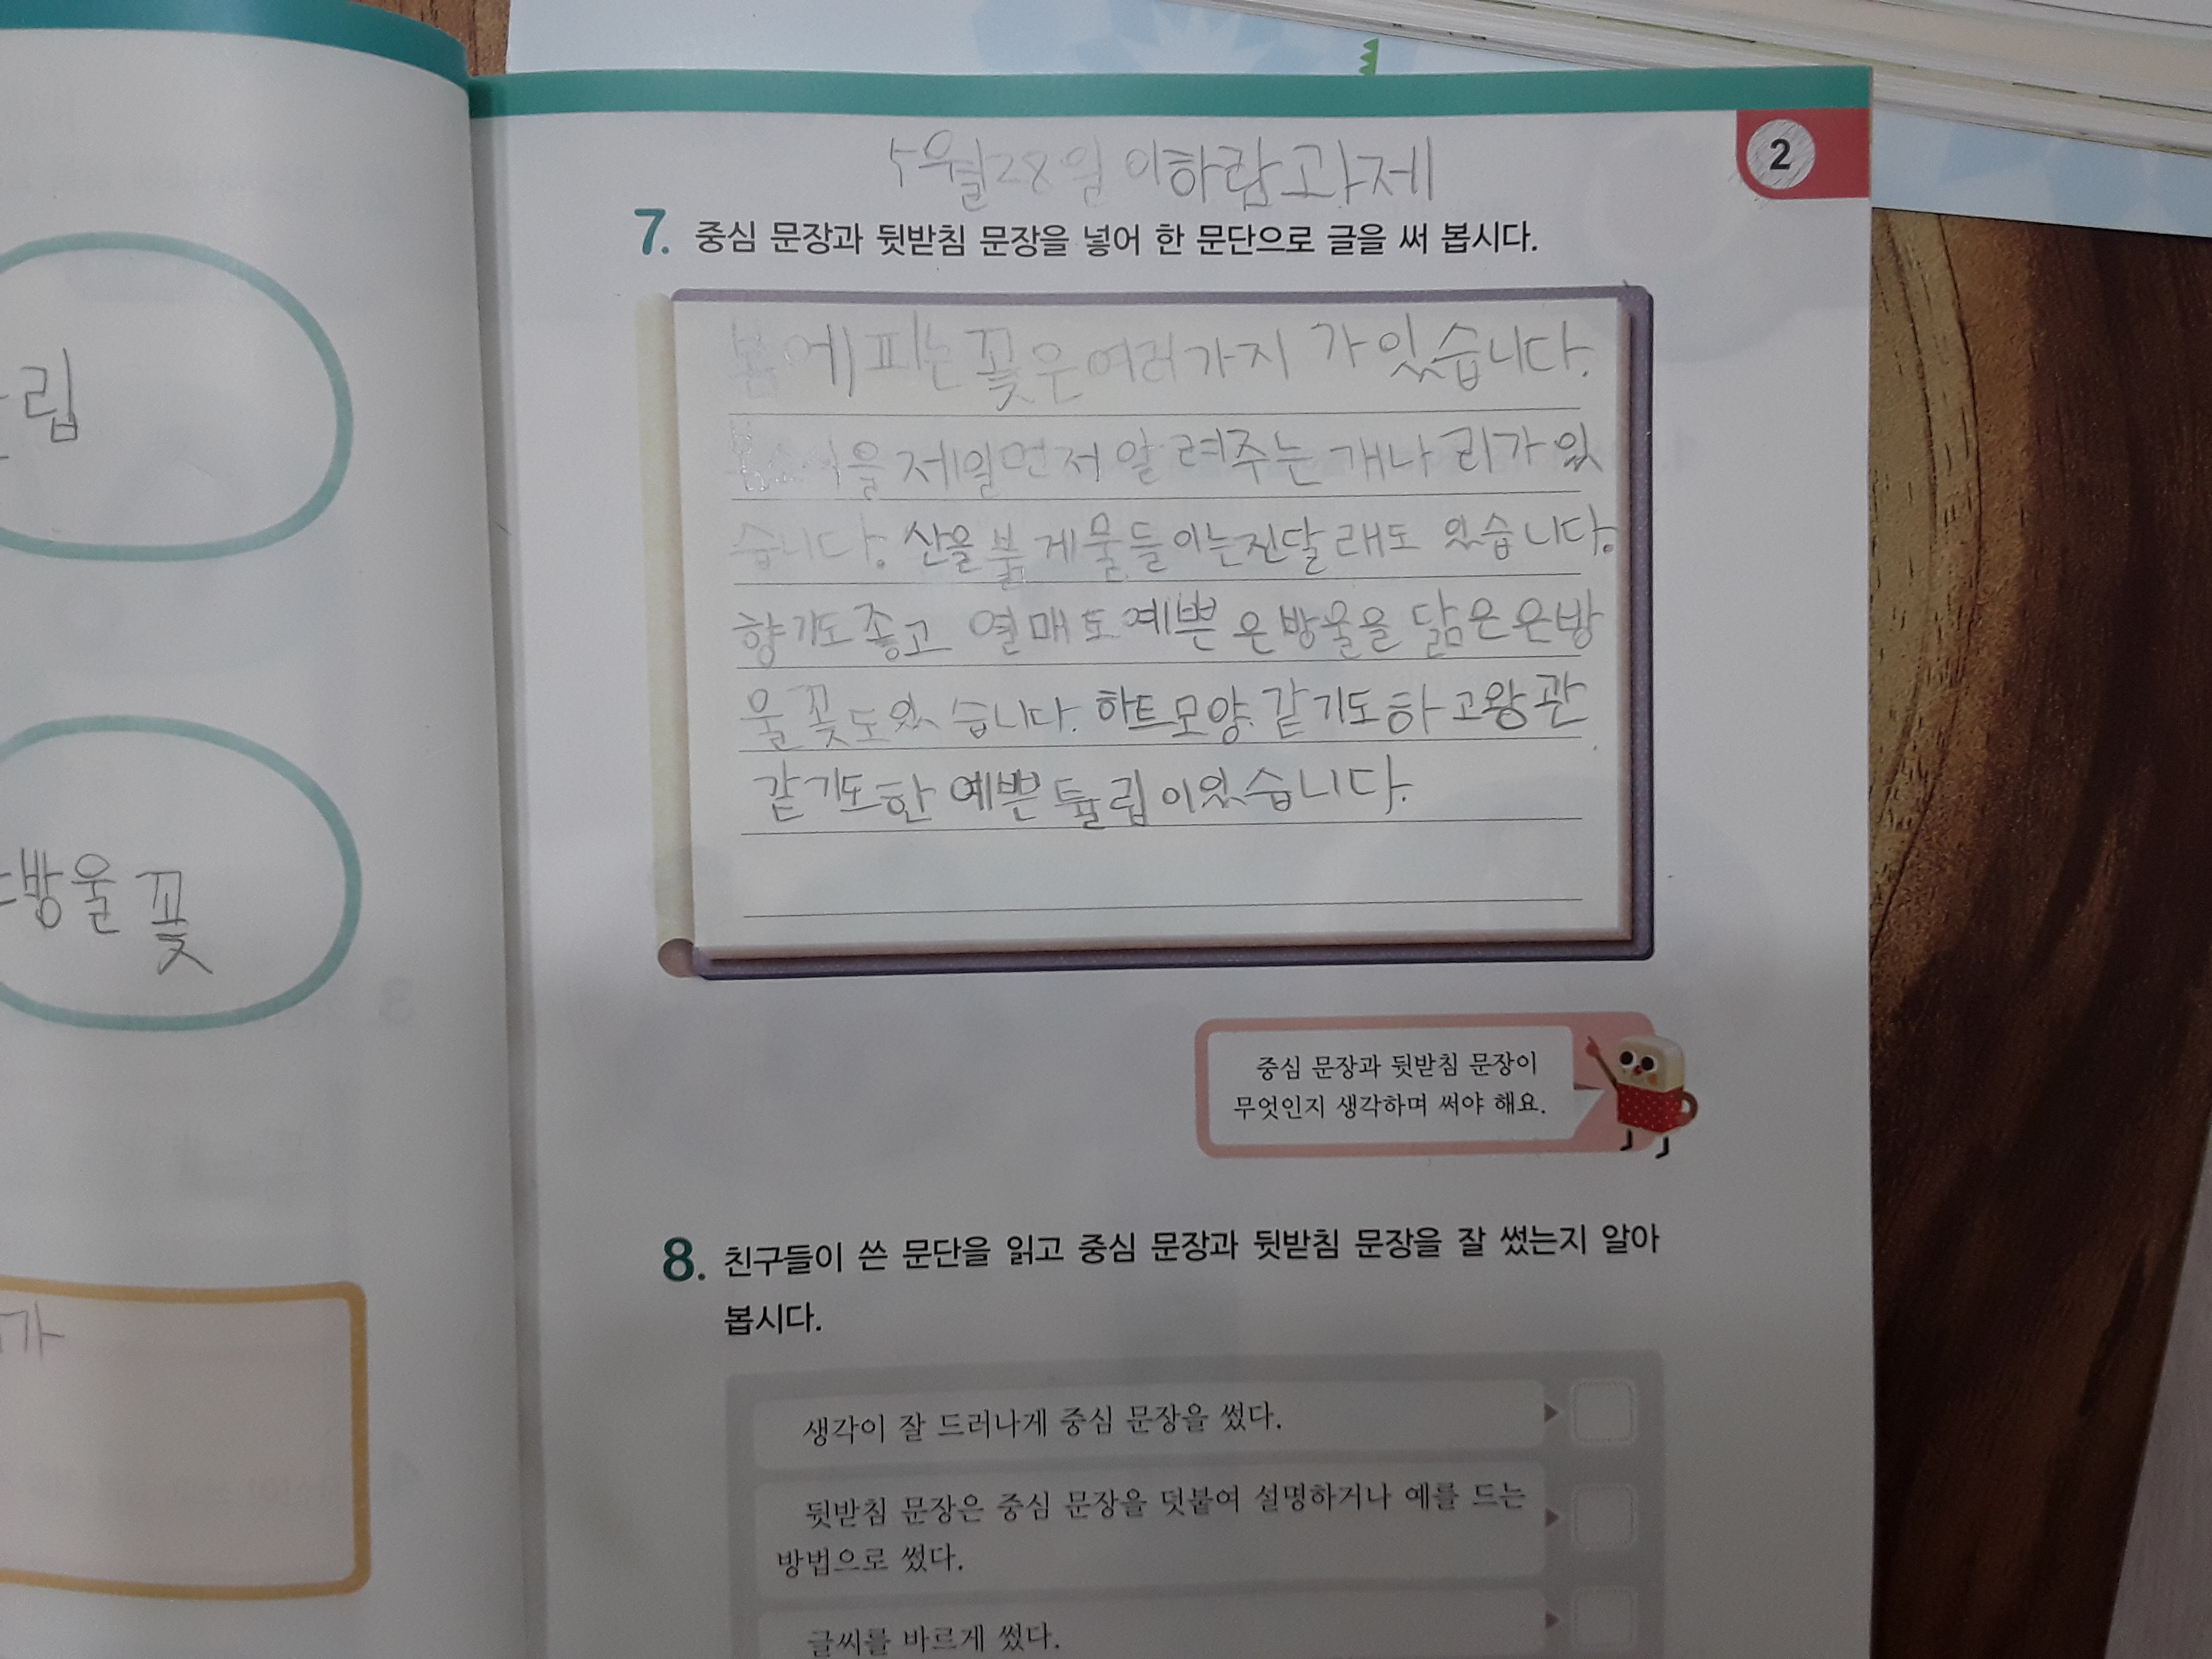 립
방울꽃
가
2
5월28일 이하람과제
7. 중심 문장과 뒷받침 문장을 넣어 한 문단으로 글을 써 봅시다.
봄에 피는 꽃은 여러가지 가 있습니다.
을 제일먼저 알려주는 개나리가 있
습니다. 산을 붉게물들이는진달래도 있습니다.
향기도좋고 열매도 예쁜 은방울을 닮은은방
울꽃도있습니다. 하트모양 같기도하고왕관
같기도한 예쁜 튤립이있습니다.
중심 문장과 뒷받침 문장이
무엇인지 생각하며 써야 해요.
8. 친구들이 쓴 문단을 읽고 중심 문장과 뒷받침 문장을 잘 썼는지 알아
봅시다.
생각이 잘 드러나게 중심 문장을 썼다.
뒷받침 문장은 중심 문장을 덧붙여 설명하거나 예를 드는
방법으로 썼다.
글씨를 바르게 썼다.